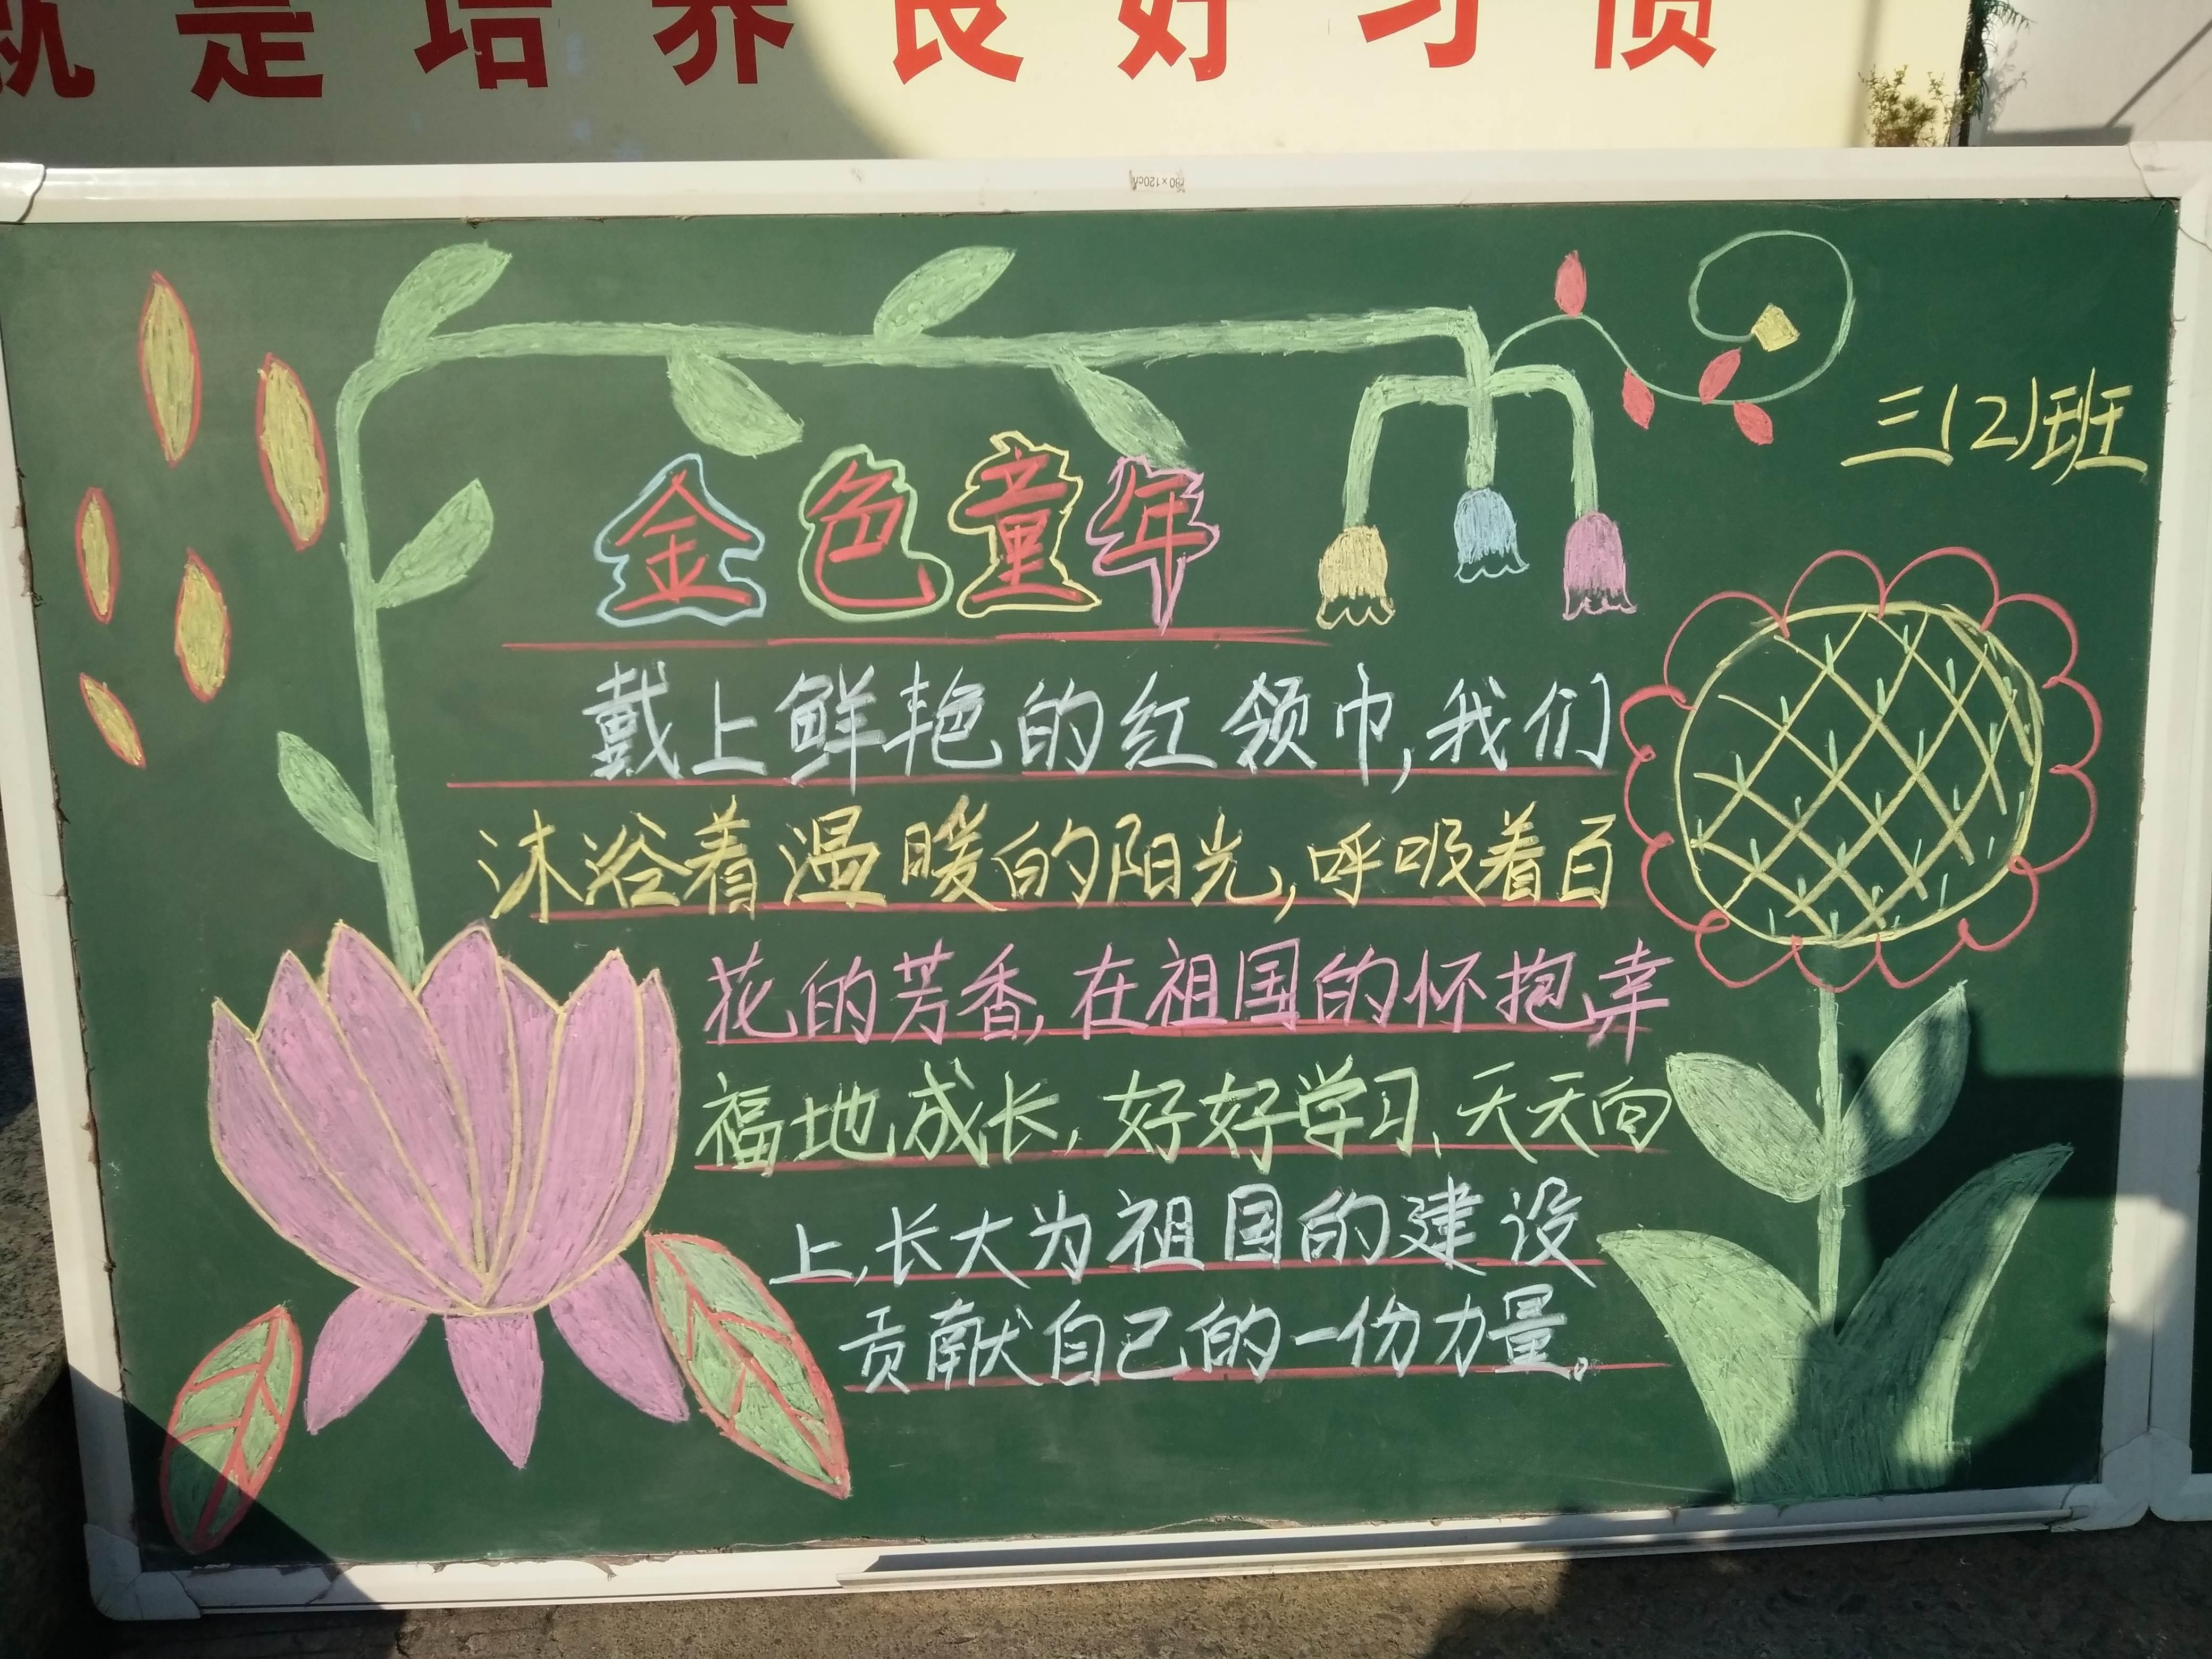 就是培养良好习惯
80×120cm
三(2)班
金色童年
戴上鲜艳的红领巾,我们
沐浴着温暖的阳光,呼吸着百
花的芳香,在祖国的怀抱幸
福地成长,好好学习,天天向
上,长大为祖国的建设
贡献自己的一份力量。